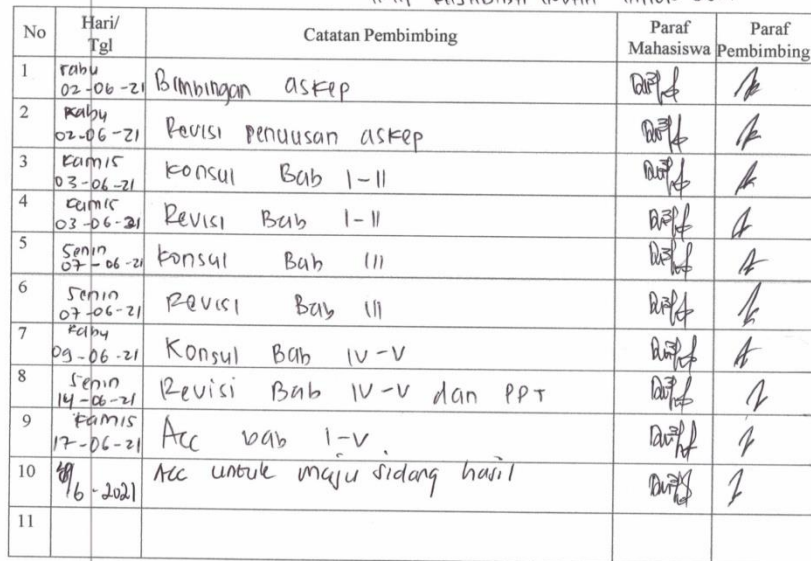 No Hari/ Tgl Catatan Pembimbing Paraf Mahasiswa Paraf Pembimbing
1 rabu 02-06-21 Bimbingan askep
2 Rabu 02-06-21 Revisi penuusan askep
3 Kamis 03-06-21 Konsul Bab I-II
4 Kamis 03-06-21 Revisi Bab I-II
5 Senin 07-06-21 Konsul Bab III
6 Senin 07-06-21 Revisi Bab III
7 Rabu 09-06-21 Konsul Bab IV-V
8 Senin 14-06-21 Revisi Bab IV-V dan PPT
9 Kamis 17-06-21 Acc bab I-V.
10 /6-2021 Acc untuk maju sidang hasil
11